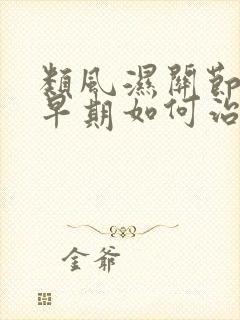 類風濕關節
早期如何治
金爺